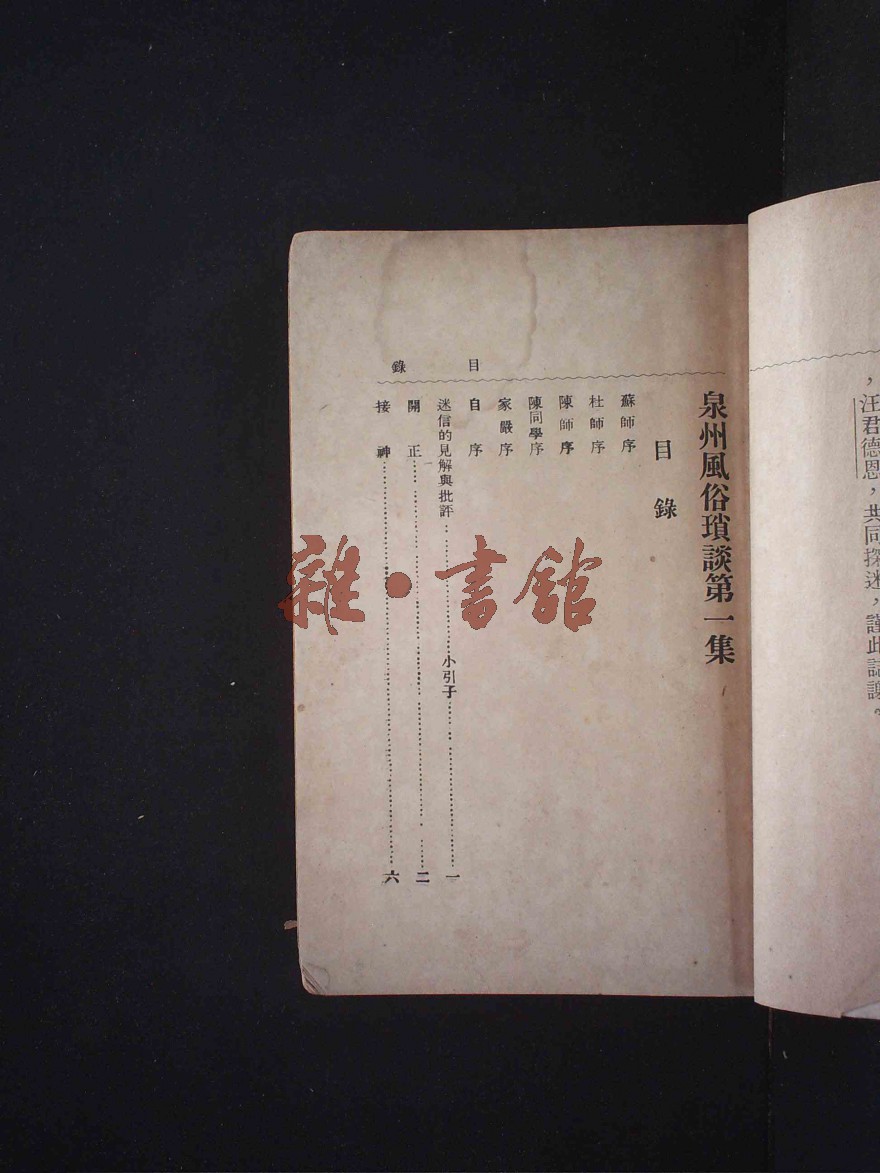 ，汪君德恩，共同探迷，謹此誌謝。
泉州風俗瑣談第一集
目錄
蘇師序
杜師序
陳師序
陳同學序
家嚴序
自序
迷信的見解與批評……小引子……一
開正……二
接神……六
目錄
雜·書館